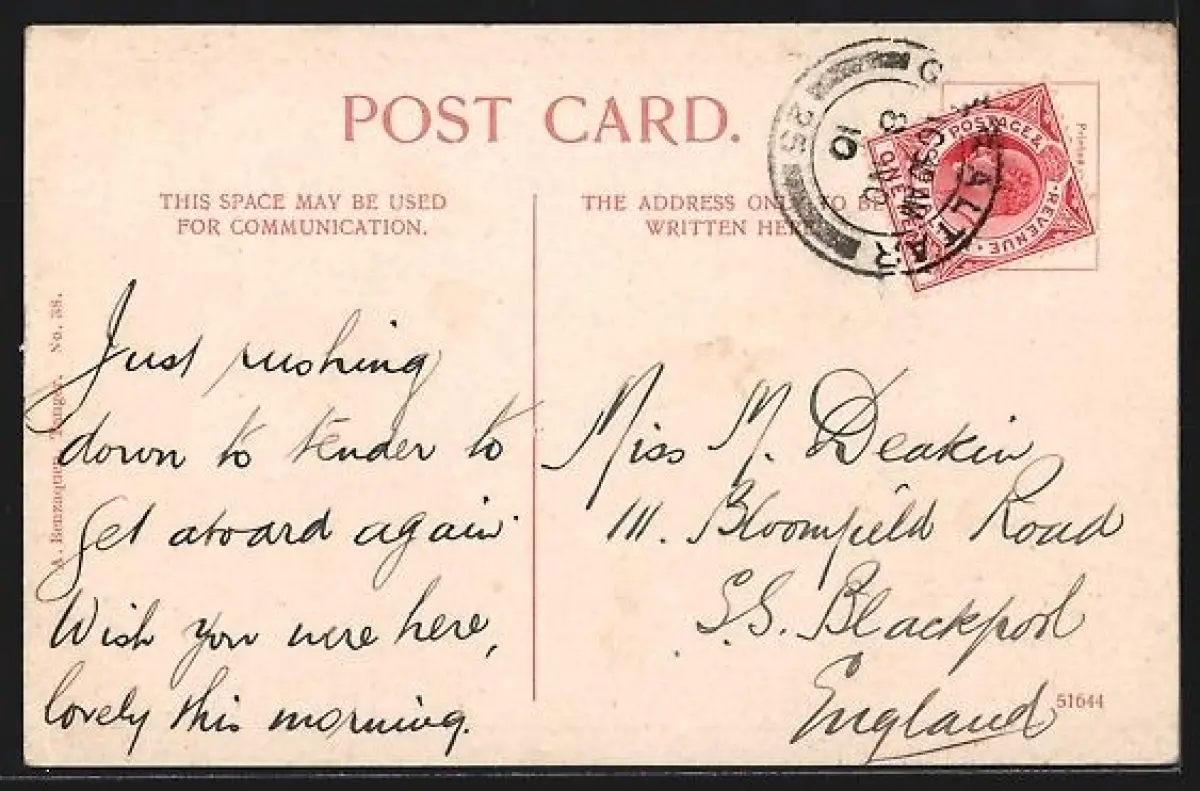 POST CARD.
THIS SPACE MAY BE USED
FOR COMMUNICATION.
THE ADDRESS ONLY TO BE
WRITTEN HERE
Printed
GIBRALTAR
8
10
225
POSTAGE & REVENUE
ONE
A. Benzaquen, Tangier. No. 38.
Just rushing
down to tender to
get aboard again.
Wish you were here,
lovely this morning.
Miss M. Deakin
111. Bloomfield Road
S.S. Blackpool
England
51644